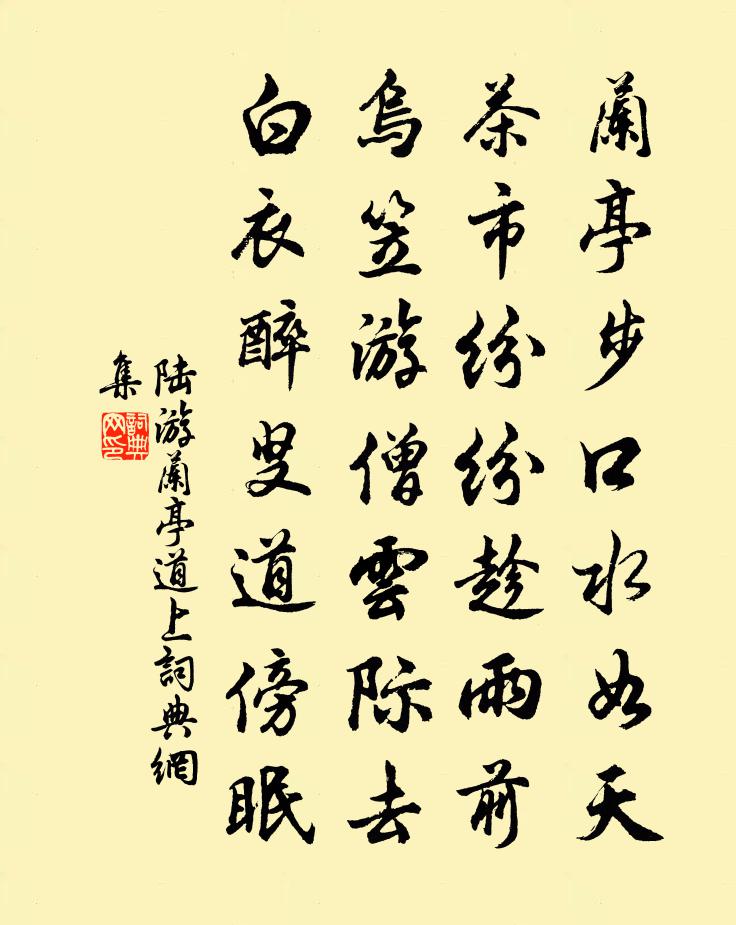 蘭亭步口水如天
茶市紛紛趁雨前
烏笠游僧雲际去
白衣醉叟道傍眠
陆游蘭亭道上詞典網
集
詞典网印